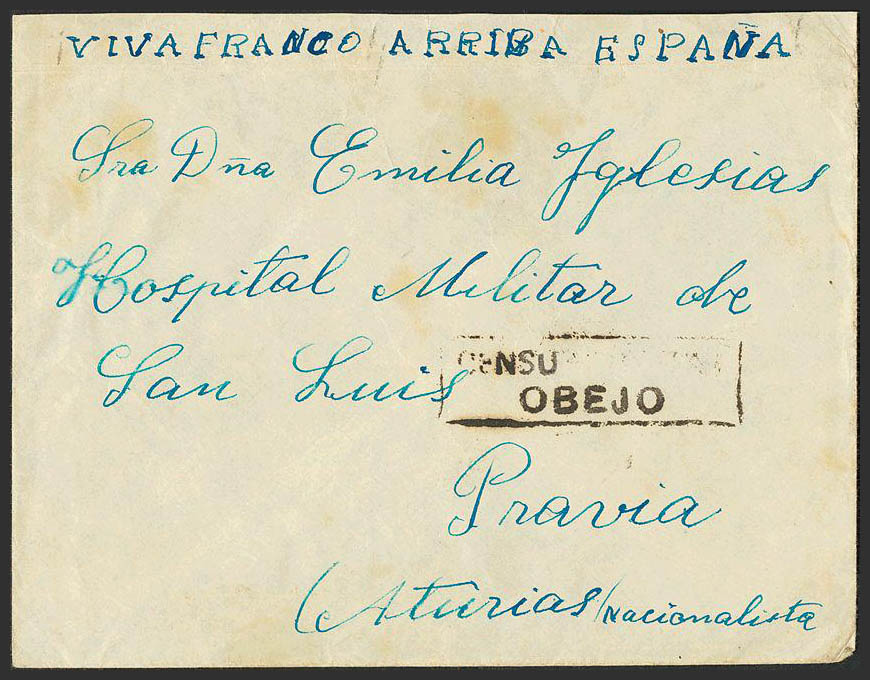 VIVA FRANCO ARRIBA ESPAÑA
Sra Dña Emilia Yglesias
Hospital Militar de
San Luis
CENSU
OBEJO
Pravia
(Aturias) Nacionalista